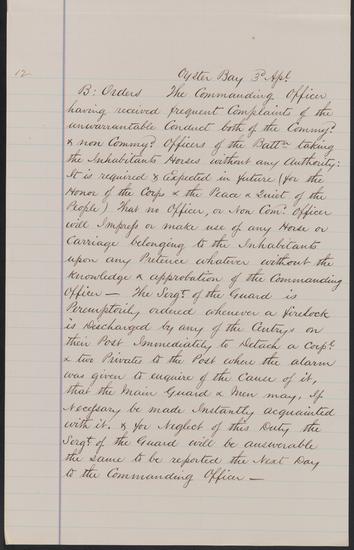 Oyster Bay 3d Apl
12 B: Orders The Commanding Officer
having received frequent Complaints of the
unwarrantable Conduct both of the Commy:
& non Commy: Officers of the Battn taking
the Inhabitants Horses without any Authority:
It is required & Expected in future (for the
Honor of the Corps & the Peace & Quiet of the
People) That no Officer, or Non Comy Officer
will Impress or make use of any Horse or
Carriage belonging to the Inhabitants
upon any Pretence whatever without the
Knowledge & approbation of the Commanding
Officer — The Sergt of the Guard is
Peremptorily ordered whenever a firelock
is Discharged by any of the Centrys on
their Post Immediately to Detach a Corpl
& two Privates to the Post where the alarm
was given to enquire of the Cause of it,
that the Main Guard & Men may, if
Necessary be made Instantly acquainted
with it. & for Neglect of this Duty the
Sergt of the Guard will be answerable
the same to be reported the Next Day
to the Commanding Officer —